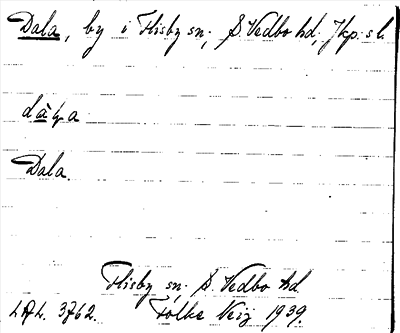 Dala, by i Flisby sn; S. Vedbo hd; Jkp:s l.
Dala.
Flisby sn. S. Vedbo hd
LAL. 3762. Folke 1939.